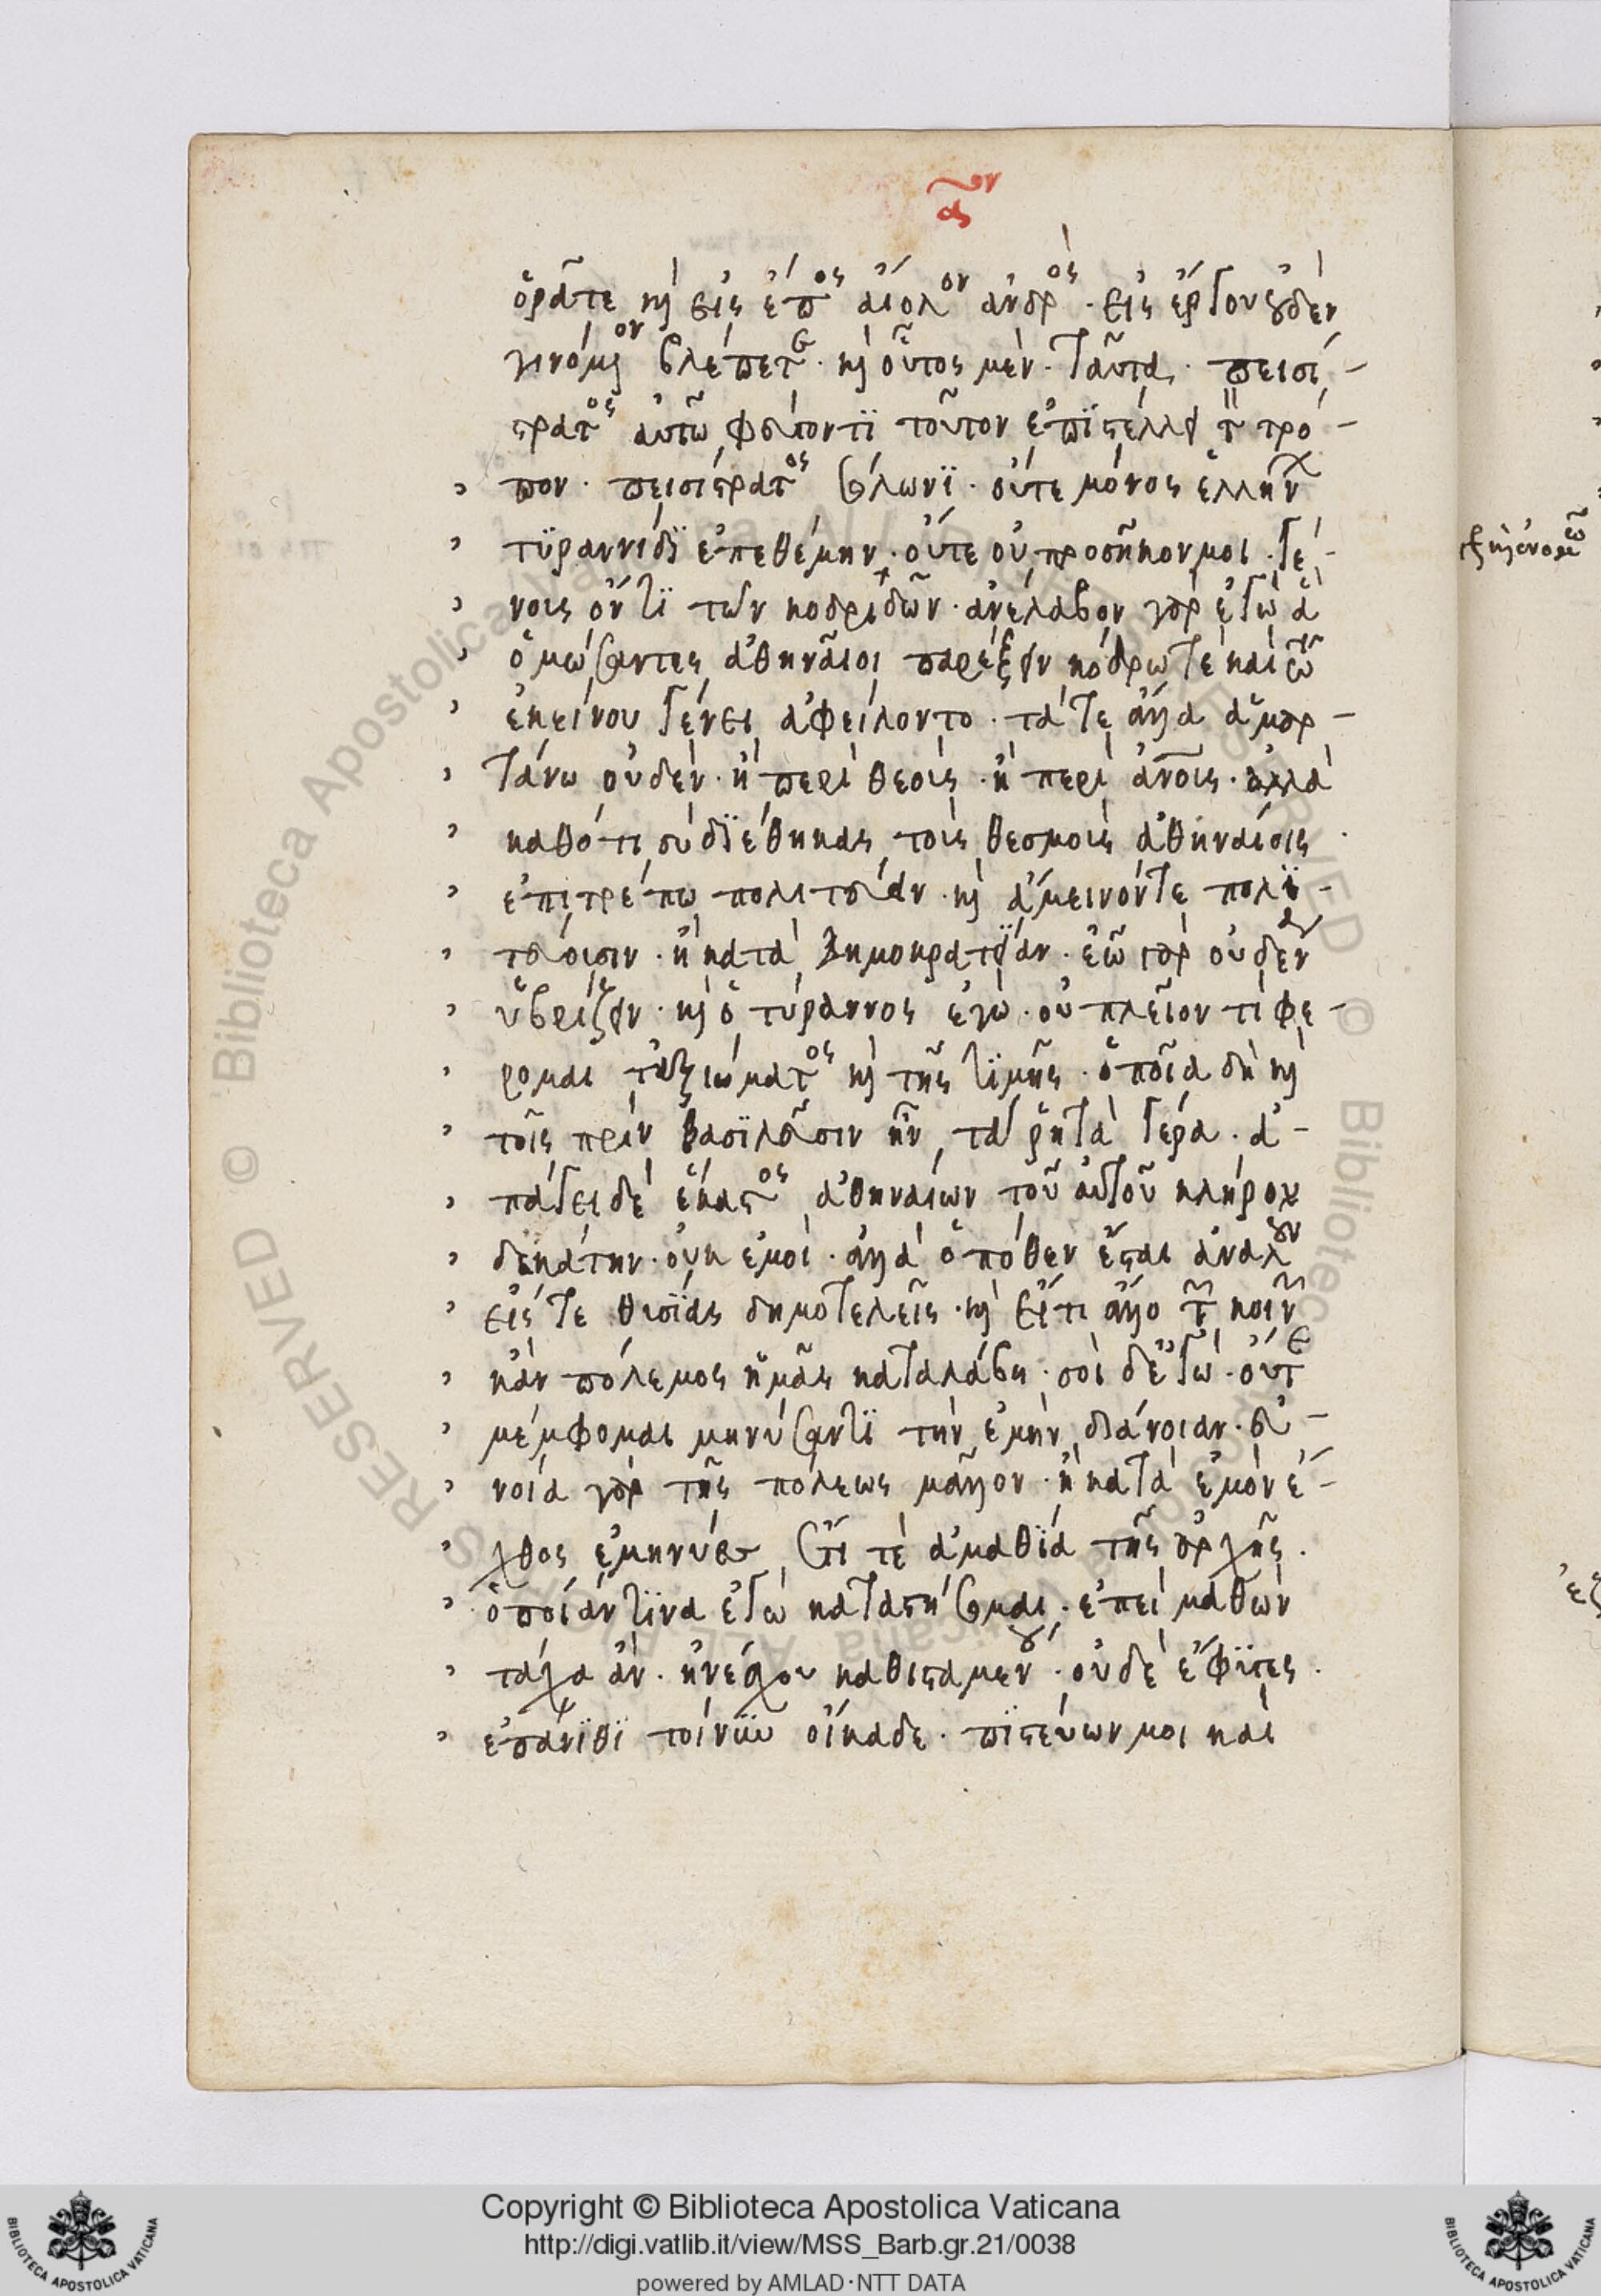 α<sup>ον</sup>
ὁρᾶτε καὶ εἰς ἔπος αἰόλον ἀνδρὸς · εἰς ἔργον οὐδὲν
γινόμενον βλέπετε · καὶ οὗτος μὲν · ταῦτα · πεισί-
στρατος αὐτῶ φεύγοντι τοῦτον ἐπιστέλλει τὸν τρό-
πον · πεισίστρατος σόλωνϊ · οὔτε μόνος ἑλλήνων
τϋραννίδϊ ἐπεθέμην · οὔτε οὐ προσῆκον μοι · γέ-
νοις ὄντϊ τῶν κοδριδῶν · ἀνέλαβον γὰρ ἐγὼ ἃ
ὀμώσαντες ἀθηναῖοι παρέξειν κόδρω τὲ καὶ τῶ
ἐκείνου γένει ἀφείλοντο · τά τε ἄλλα ἁμαρ-
τάνω οὐδὲν · ἢ περὶ θεοὶς · ἢ περὶ ἀνοις · ἀλλὰ
καθότι σὺ δϊέθηκας τοὶς θεσμοὶς ἀθηναίοις ·
ἐπιτρέπω πολιτεύειν · καὶ ἄμεινόν τε πολϊ-
τεύοισιν · ἢ κατὰ δημοκρατϊαν · ἐῶ γὰρ οὐδένα
ὑβρίζειν · καὶ ὁ τύραννος ἐγὼ · οὐ πλεῖον τι φέ-
ρομαι τἀξιώματος καὶ τῆς τϊμῆς · ὁποῖα δὴ καὶ
τοῖς πρὶν βασϊλεῦσιν ἦν τὰ ῥητὰ γέρα · ἀ-
πάγει δὲ ἕκαστος ἀθηναίων τοῦ αὐτοῦ κλήρου
δεκάτην · οὐκ ἐμοὶ · ἀλλὰ ὁπόθεν ἔσται ἀναλοῦν
εἴς τε θυσϊας δημοτελεῖς · καὶ εἴ τι ἄλλο τῶν κοινῶν
κἂν πόλεμος ἡμᾶς καταλάβη · σοὶ δὲ ἐγὼ · οὔτε
μέμφομαι μηνύσαντϊ τὴν ἐμὴν διάνοιαν · εὐ-
νοία γὰρ τῆς πόλεως μᾶλλον · ἢ κατὰ ἐμὸν ἔ-
χθος ἐμήνυες ἔτι τὲ ἀμαθϊα τῆς ἀρχῆς ·
ὁποίάν τϊνα ἐγὼ καταστήσομαι · ἐπεὶ μαθὼν
τάχα ἂν · ἠνέσχου καθισταμένου · οὐδὲ ἔφϋγες ·
ἐπάνϊθϊ τοίνϋν οἴκαδε · πϊστεύων μοι καὶ
Copyright © Biblioteca Apostolica Vaticana
http://digi.vatlib.it/view/MSS_Barb.gr.21/0038
powered by AMLAD·NTT DATA